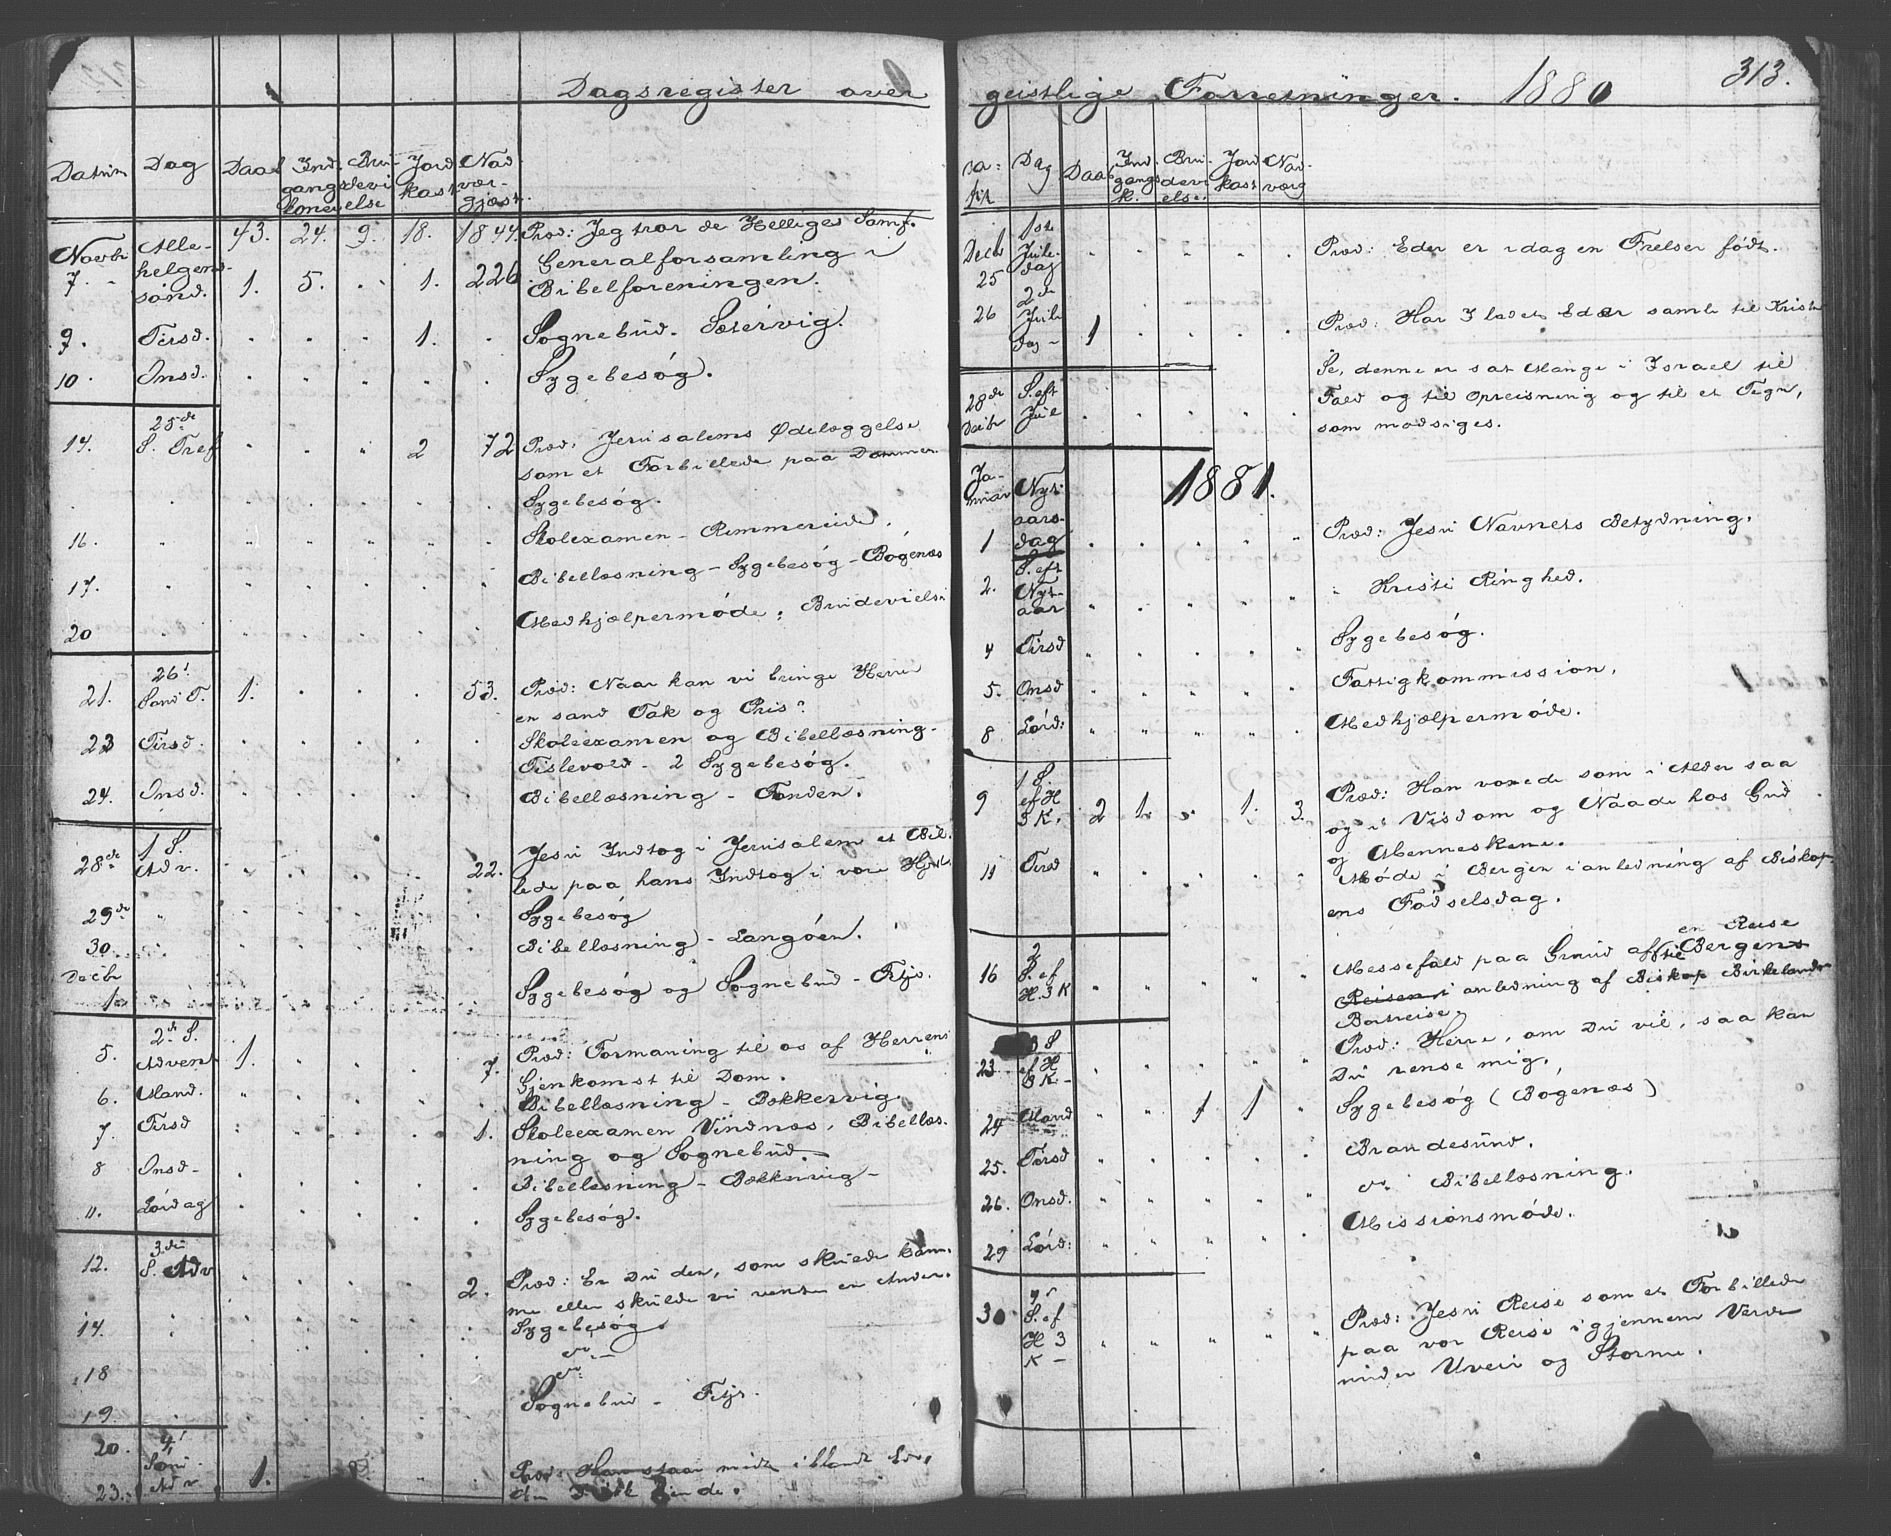 Dagsregister over
Datum Dag Daab Ind- Bru- Jord Nad
gangs- devi kast vær-
koner else gjæst.
43. 24. 9. 18. 1844. Præd: Jeg tror de Helliges Samf.
Novbr Alle-
7. helgens- 1. 5. " 1. 226 Generalforsamling i
sønd. Bibelforeningen.
9. Tirsd. " " " 1. " Sognebud. Sætervig.
10. Onsd. " " " " " Sygebesøg.
25de
14. S. Tref " " " 2 72 Præd: Jerusalems Ødelæggelse
som et Forbillede paa Dommen
Sygebesøg.
16. " Skoleexamen - Rimmereide.
17. " Bibellæsning - Sygebesøg - Bøgenæs
20 " Medhjælpermøde; Brudevielse
26'
21. Sønd T. 1. " " " 53. Præd: Naar kan vi bringe Herren
en sand Tak og Pris?
23 Tirsd. Skoleexamen og Bibellæsning.
Tislevold - 2 Sygebesøg.
24. Onsd. Bibellæsning - Fonden.
1 S.
28de Adv. " " " " 22. Jesu Indtog i Jerusalem et Bil-
lede paa hans Indtog i vore Hjert.
29de " Sygebesøg
30. " Bibellæsning - Langøen.
Decbr
1. Sygebesøg og Sognebud - Fitje.
2de S.
5. Advent 1. " " " 7. Præd: Formaning til os af Herrens
Gjenkomst til Dom.
6. Mand. Bibellæsning - Bækkervig.
7. Tirsd " " " " 1. Skoleexamen Vindnæs, Bibellæs-
ning og Sognebud.
8 Onsd- Bibellæsning - Bækkervig -
11. Lørdag Sygebesøg.
3die
12. S. Adv " " " " 2. Præd: Er Du den, som skulde kom-
me eller skulde vi vente en Anden.
14. " Sygebesøg.
do -
18 do
19. Sognebud - Fitje.
20. 4'
Sønd.
23. Adv 1. Præd: Han staar midt iblandt Eder,
geistlige Forretninger. 1880 313.
Da- Dag Daab Ind- Bru- Jord Nad-
gangs devi- kast værg
k. else
1ste
Decbr Jule- " " " " " Præd: Eder er idag en Frelser født.
25 dag
2de
26 Jule 1 " " " " Præd: Har I ladet Eder samle til Krist
dag -
28de S. eft " " " " " Se, denne er sat Mange i Israel til
Decbr Jul Fald og til Opreisning og til et Tegn,
som modsiges.
Ja-
nuar Nyt- 1881.
aars-
1 dag " " " " " Præd: Jesu Navnets Betydning.
S. eft
2. Nyt- " " " " " " Kristi Ringhed.
aar
4 Tirsd Sygebesøg.
5. Onsd Fattigkommission.
8 Lørd: Medhjælpermøde.
1 S.
9 ef H 2 1. " 1. 3. Præd: Han voxede som i Alder saa
3 K. og i Visdom og Naade hos Gud
og Menneskene.
11 Tirsd Møde i Bergen i anledning af Biskop-
ens Fødselsdag.
2 en Reise
16 S. ef Messefald paa Grund af til Bergens
H. 3 K Reisen i anledning af Biskop Birkelands
Bortreise.
3 S
23 ef H Præd: Herre, om Du vil, saa kan
3 K. - Du rense mig.
24 Mand " " 1 1 " Sygebesøg (Bogenæs)
25. Tirsd Brandesund.
26. Onsd. do Bibellæsning.
29 Lørd: Missionsmøde.
4'
30 S. ef Præd: Jesu Reise som et Forbillede
H 3 paa vor Reise igjennem Verden
K - under Uveir og Storme.